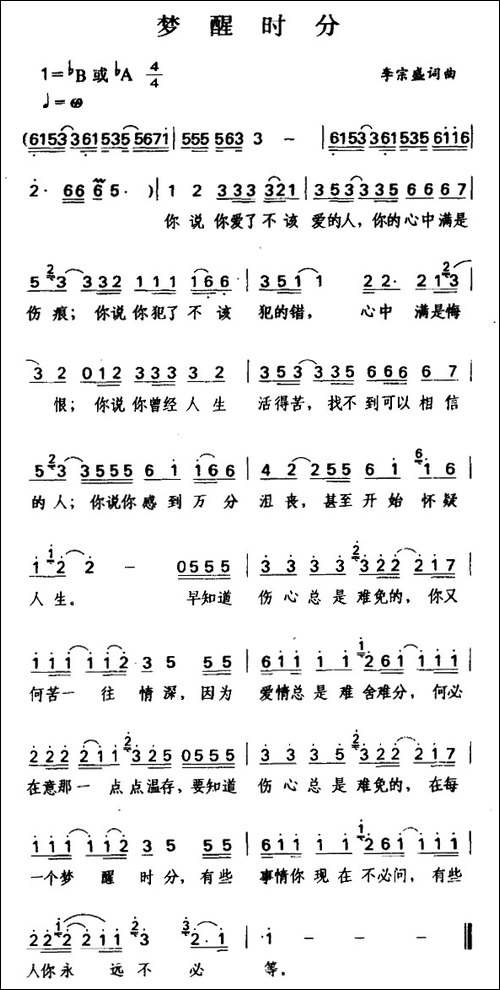 梦醒时分
1=♭B或♭A 4/4
李宗盛词曲
(6153361535567i | 555 563 3 – | 61533615356116
2· 66 6 5· )| 1 2 333 321 | 353335 66 67 |
你说你爱了不该 爱的人,你的心中满是
5 2 3 332 111 166 | 3511 1 22· 213 |
伤痕;你说你犯了不该 犯的错, 心中 满是悔
3 2 012 333 332 | 353 335 666 6 7 |
恨;你说你曾经人生 活得苦,找不到可以相信
5 2 3 3555 6 i i66 | 42255 6 i 6 i 6 |
的人;你说你感到万分 沮丧,甚至开始怀疑
i i 2 2 – 0555 | 3 3 3 3 5 2 322 217 |
人生。 早知道 伤心总是难免的,你又
iii ii2 3 5 55 | 6ii i i i 26i iii |
何苦一往情深,因为 爱情总是难舍难分,何必
222 2ii 2 325 0555 | 3 3 3 5 2 322 217 |
在意那一点点温存,要知道 伤心总是难免的,在每
iii ii2 3 5 55 | 6ii i i i 26i iii |
一个梦醒时分,有些 事情你现在不必问,有些
22i22ii 2 3 3 2·i | i – – – ‖
人你永远不必 等。